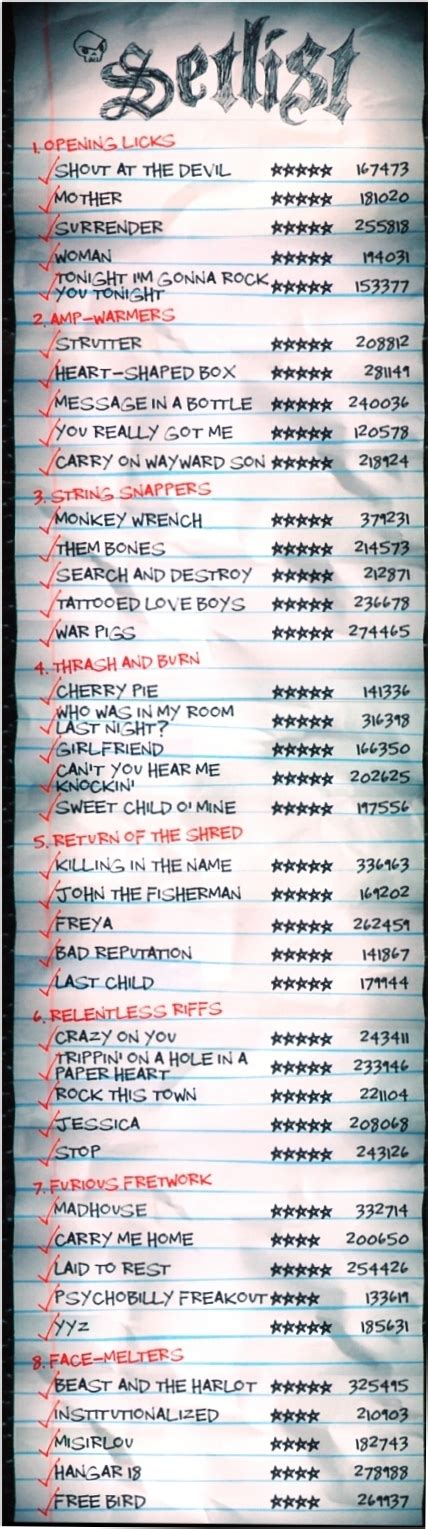 Setlist
1. OPENING LICKS
SHOUT AT THE DEVIL ★★★★★ 167473
MOTHER ★★★★★ 181020
SURRENDER ★★★★★ 255818
WOMAN ★★★★★ 194031
TONIGHT I'M GONNA ROCK
YOU TONIGHT ★★★★★ 153377
2. AMP-WARMERS
STRUTTER ★★★★★ 208812
HEART-SHAPED BOX ★★★★★ 281149
MESSAGE IN A BOTTLE ★★★★★ 240036
YOU REALLY GOT ME ★★★★★ 120578
CARRY ON WAYWARD SON ★★★★★ 218924
3. STRING SNAPPERS
MONKEY WRENCH ★★★★★ 379231
THEM BONES ★★★★★ 214573
SEARCH AND DESTROY ★★★★★ 212871
TATTOOED LOVE BOYS ★★★★★ 236678
WAR PIGS ★★★★★ 274465
4. THRASH AND BURN
CHERRY PIE ★★★★★ 141336
WHO WAS IN MY ROOM
LAST NIGHT? ★★★★★ 316398
GIRLFRIEND ★★★★★ 166350
CAN'T YOU HEAR ME
KNOCKIN' ★★★★★ 202625
SWEET CHILD O' MINE ★★★★★ 197556
5. RETURN OF THE SHRED
KILLING IN THE NAME ★★★★★ 336963
JOHN THE FISHERMAN ★★★★★ 169202
FREYA ★★★★★ 262459
BAD REPUTATION ★★★★★ 141867
LAST CHILD ★★★★★ 179944
6. RELENTLESS RIFFS
CRAZY ON YOU ★★★★★ 243411
TRIPPIN' ON A HOLE IN A
PAPER HEART ★★★★★ 233946
ROCK THIS TOWN ★★★★★ 221104
JESSICA ★★★★★ 208068
STOP ★★★★★ 243126
7. FURIOUS FRETWORK
MADHOUSE ★★★★★ 332714
CARRY ME HOME ★★★★ 200650
LAID TO REST ★★★★★ 254426
PSYCHOBILLY FREAKOUT ★★★★ 133619
YYZ ★★★★★ 185631
8. FACE-MELTERS
BEAST AND THE HARLOT ★★★★★ 325495
INSTITUTIONALIZED ★★★★ 210903
MISIRLOU ★★★★ 182743
HANGAR 18 ★★★★ 278988
FREE BIRD ★★★★ 269937